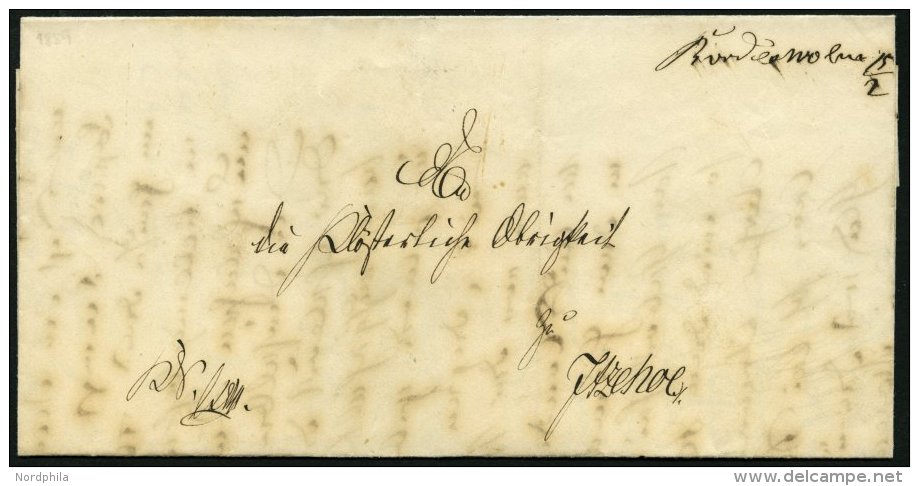 1859
Bordesholm 15/2
An
die Klösterliche Obrigkeit
zu
Itzehoe
K.S.
Nordphila
www.delcampe.net